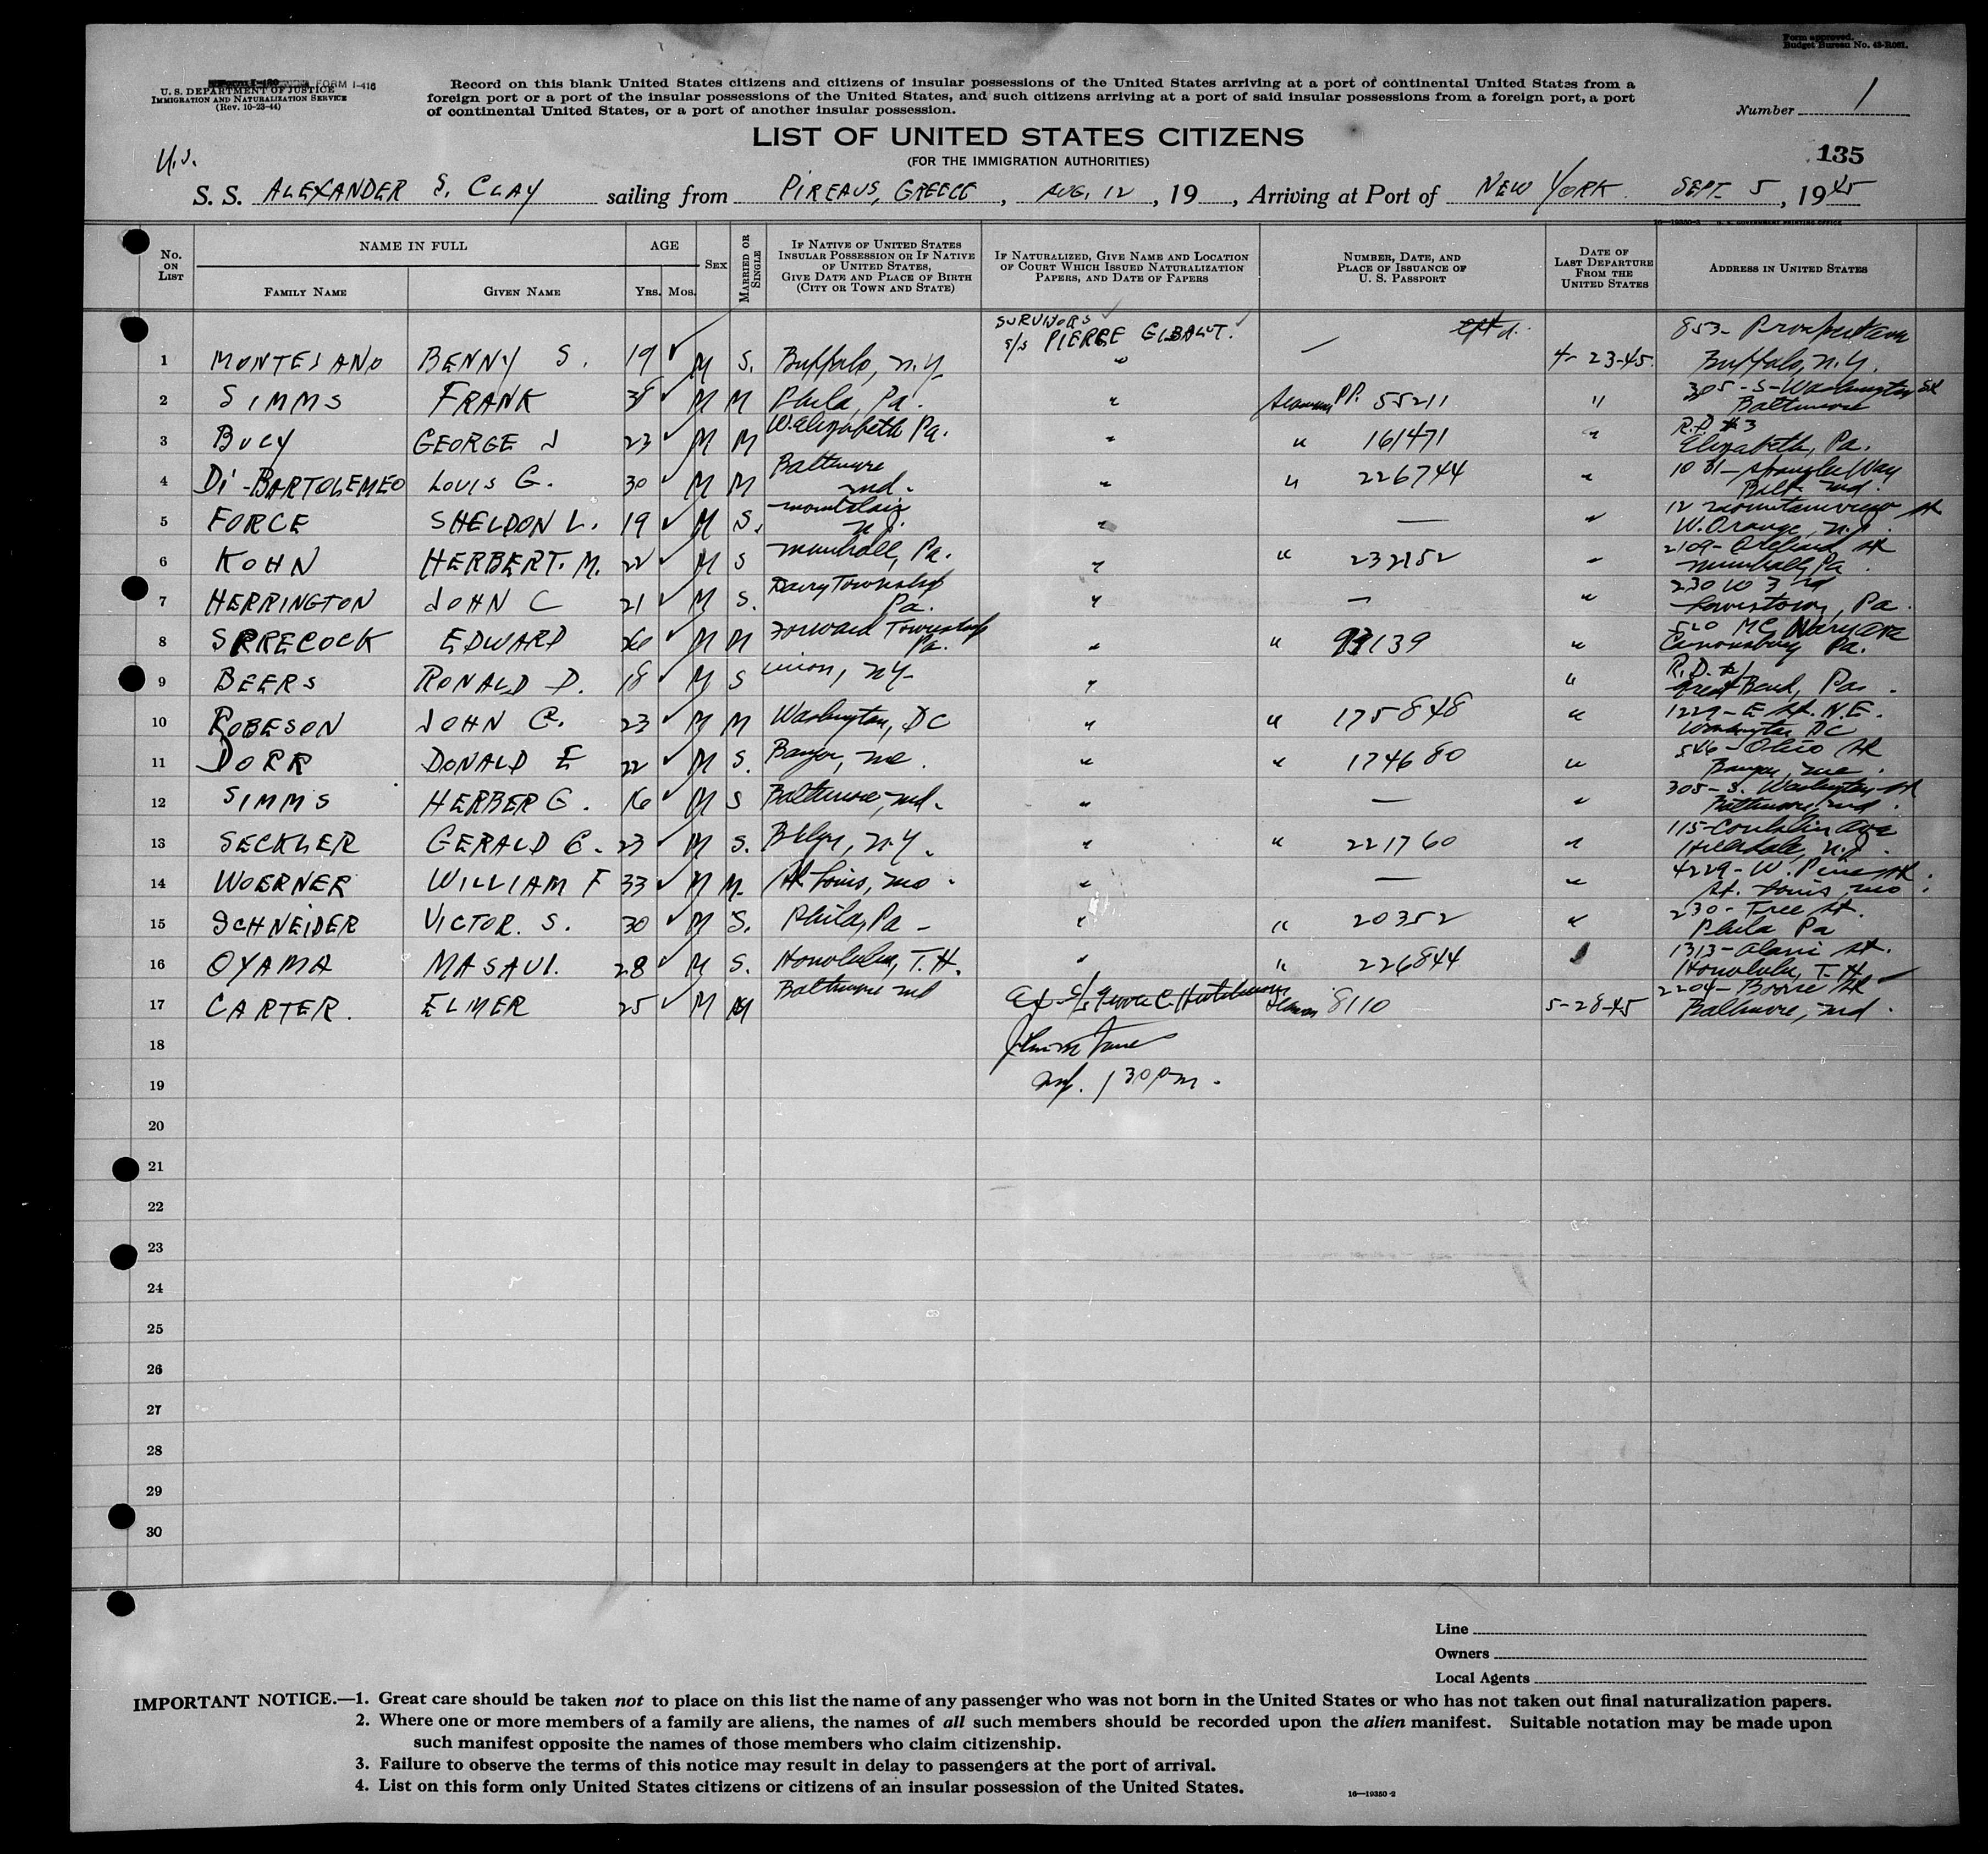 Form approved.
Budget Bureau No. 43-R061.
FORM I-416
U. S. DEPARTMENT OF JUSTICE
IMMIGRATION AND NATURALIZATION SERVICE
(Rev. 10-23-44)
Record on this blank United States citizens and citizens of insular possessions of the United States arriving at a port of continental United States from a
foreign port or a port of the insular possessions of the United States, and such citizens arriving at a port of said insular possessions from a foreign port, a port
of continental United States, or a port of another insular possession.
Number 1
LIST OF UNITED STATES CITIZENS
(FOR THE IMMIGRATION AUTHORITIES)
135
U.S.
S. S. ALEXANDER S. CLAY sailing from PIREAUS, GREECE, AUG. 12, 19 , Arriving at Port of NEW YORK SEPT. 5, 1945
16—19350-3 U. S. GOVERNMENT PRINTING OFFICE
No. ON LIST NAME IN FULL FAMILY NAME GIVEN NAME AGE YRS. MOS. SEX MARRIED OR SINGLE IF NATIVE OF UNITED STATES INSULAR POSSESSION OR IF NATIVE OF UNITED STATES, GIVE DATE AND PLACE OF BIRTH (CITY OR TOWN AND STATE) IF NATURALIZED, GIVE NAME AND LOCATION OF COURT WHICH ISSUED NATURALIZATION PAPERS, AND DATE OF PAPERS NUMBER, DATE, AND PLACE OF ISSUANCE OF U. S. PASSPORT DATE OF LAST DEPARTURE FROM THE UNITED STATES ADDRESS IN UNITED STATES
SURVIVORS
S/S PIERRE GIBAUT.
1 MONTESANO BENNY S. 19 ✓ M S. Buffalo, N.Y. " — 4-23-45. 853- Prospect ave Buffalo, N.Y.
2 SIMMS FRANK 38 ✓ M M Phila, Pa. " Seamans PP. 55211 " 305-S-Washington St Baltimore
3 BUCY GEORGE J 23 ✓ M M W. Elizabeth Pa. " " 161471 " R.D #3 Elizabeth, Pa.
4 Di-BARTOLEMEO LOUIS G. 30 ✓ M M Baltimore Md. " " 226744 " 1031- Spangler Way Balt. Md.
5 FORCE SHELDON L. 19 ✓ M S. Montclair N.J. " — " 12 Mountainview St W. Orange, N.J.
6 KOHN HERBERT. M. 22 ✓ M S Munhall, Pa. " " 232152 " 2109- Orchard St Munhall, Pa.
7 HERRINGTON JOHN C 21 ✓ M S. Derry Township Pa. " — " 230 W 3rd Lewistown, Pa.
8 SPRECOCK EDWARD 26 ✓ M M Forward Township Pa. " " 139 " 520 Mc Nary Ave Canonsburg Pa.
9 BEERS RONALD D. 18 ✓ M S Union, N.Y. " " R.D. #1 Great Bend, Pa.
10 ROBESON JOHN C. 23 ✓ M M Washington, DC " " 175848 " 1229-E St. N.E. Washington DC
11 DORR DONALD E 22 ✓ M S. Bangor, Me. " " 174680 " 546-Ohio St Bangor, Me.
12 SIMMS HERBER G. 16 ✓ M S Baltimore, Md. " — " 305-S. Washington St Baltimore, Md.
13 SECKLER GERALD C. 23 ✓ M S. Bklyn, N.Y. " " 221760 " 115- Ave Hillsdale, N.J.
14 WOERNER WILLIAM F 33 ✓ M M. St Louis, Mo. " — " 4229-W. Pine St. St. Louis, Mo.
15 SCHNEIDER VICTOR. S. 30 ✓ M S. Phila, Pa " " 20352 " 230-Tree St. Phila Pa
16 OYAMA MASAUI. 28 ✓ M S. Honolulu, T.H. " " 226844 1313-Alani St. Honolulu, T.H
17 CARTER. ELMER 25 ✓ M M Baltimore Md Ex S/S George C. Hutchinson Seamans 8110 5-28-45 2204- Boone St Baltimore, Md.
18
19 1 30 pm.
20
21
22
23
24
25
26
27
28
29
30
Line
Owners
Local Agents
IMPORTANT NOTICE.—1. Great care should be taken not to place on this list the name of any passenger who was not born in the United States or who has not taken out final naturalization papers.
2. Where one or more members of a family are aliens, the names of all such members should be recorded upon the alien manifest. Suitable notation may be made upon
such manifest opposite the names of those members who claim citizenship.
3. Failure to observe the terms of this notice may result in delay to passengers at the port of arrival.
4. List on this form only United States citizens or citizens of an insular possession of the United States.
16—19350-2